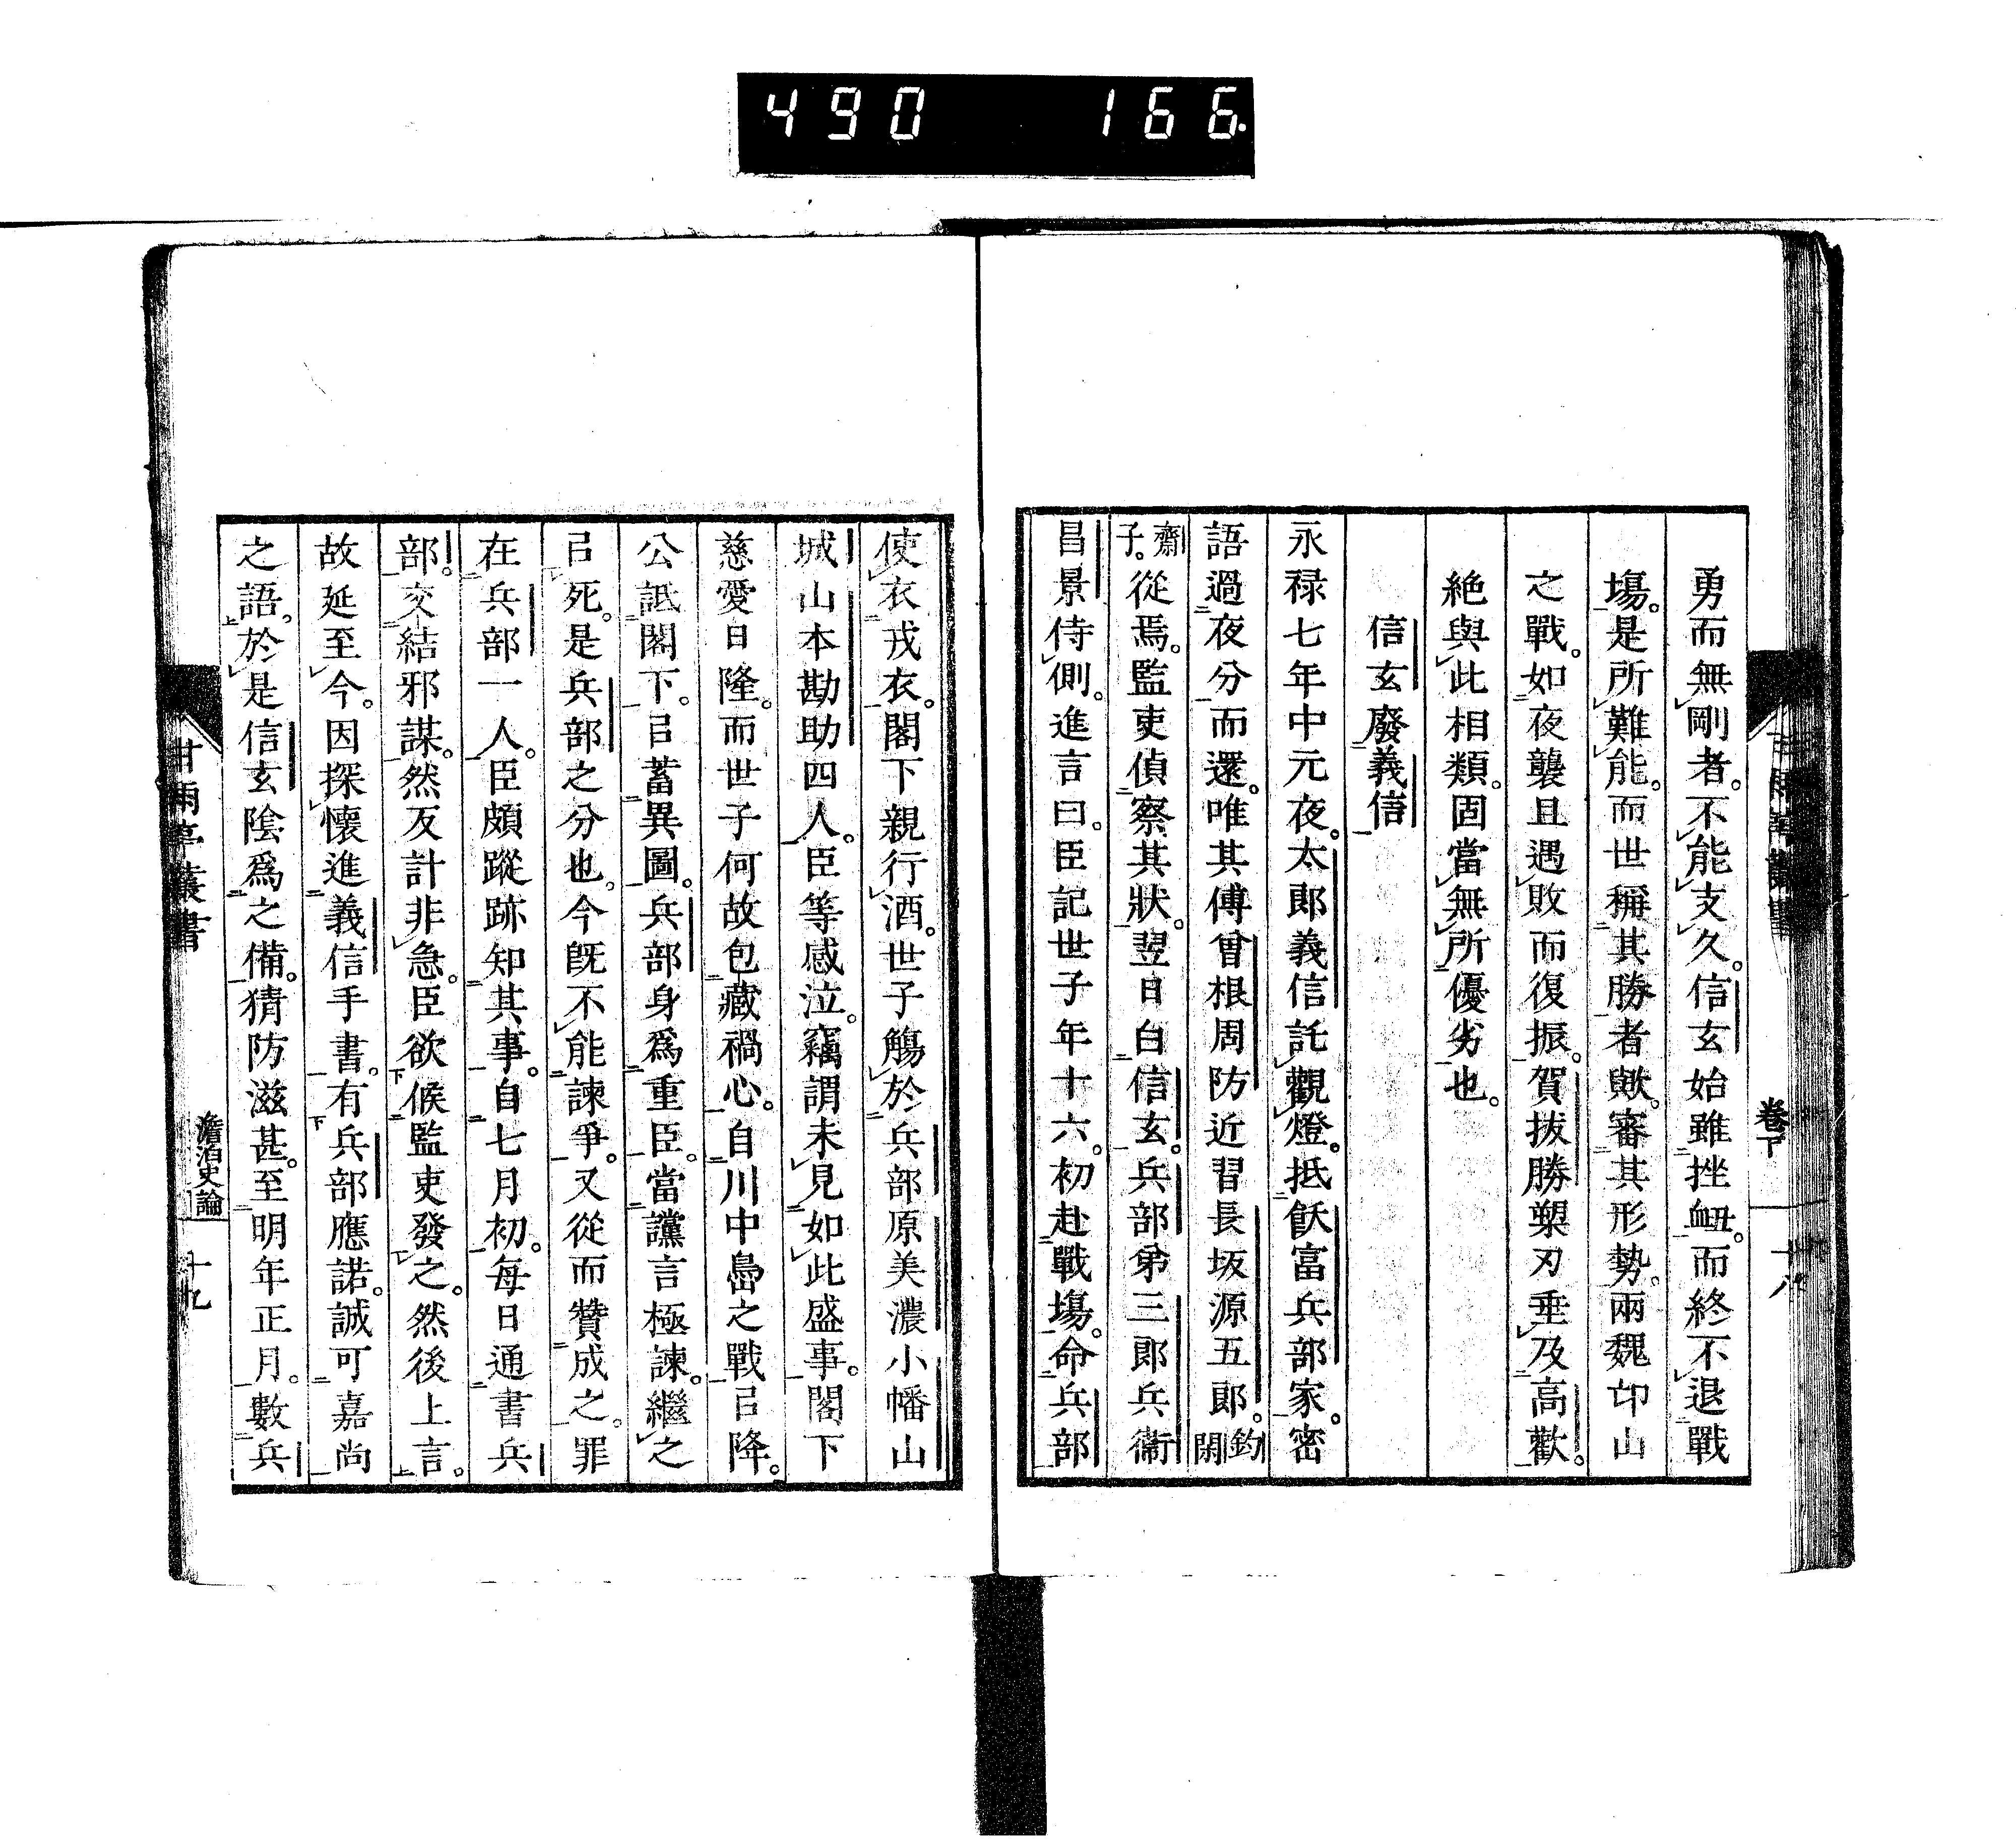 490 166
勇而無剛者。不能支久。信玄始雖挫衄。而終不退戰
塲。是所難能。而世稱其勝者歟。審其形勢。兩魏卬山
之戰。如夜襲且遇敗而復振。賀拔勝槊刃垂及高歡。
絶與此相類。固當無所優劣也。
信玄廢義信
永禄七年中元夜。太郎義信託觀燈。抵飫富兵部家。密
語過夜分而還。唯其傅曾根周防近習長坂源五郎。釣閑
齋子。從焉。監吏偵察其狀。翌日白信玄。兵部弟三郎兵衞
昌景侍側。進言曰。臣記世子年十六。初赴戰塲。命兵部
卷下
十八
使衣戎衣。閣下親行酒。世子觴於兵部原美濃小幡山
城山本勘助四人。臣等感泣。竊謂未見如此盛事。閣下
慈愛日隆。而世子何故包藏禍心。自川中島之戰㠯降。
公詆閣下。㠯蓄異圖。兵部身爲重臣。當讜言極諫。繼之
㠯死。是兵部之分也。今既不能諫爭。又從而贊成之。罪
在兵部一人。臣頗蹤跡知其事。自七月初。每日通書兵
部。交結邪謀。然反計非急。臣欲候監吏發之。然後上言。
故延至今。因探懷進義信手書。有兵部應諾。誠可嘉尚
之語。於是信玄陰爲之備。猜防滋甚。至明年正月。數兵
甘雨亭叢書
澹泊史論
十九